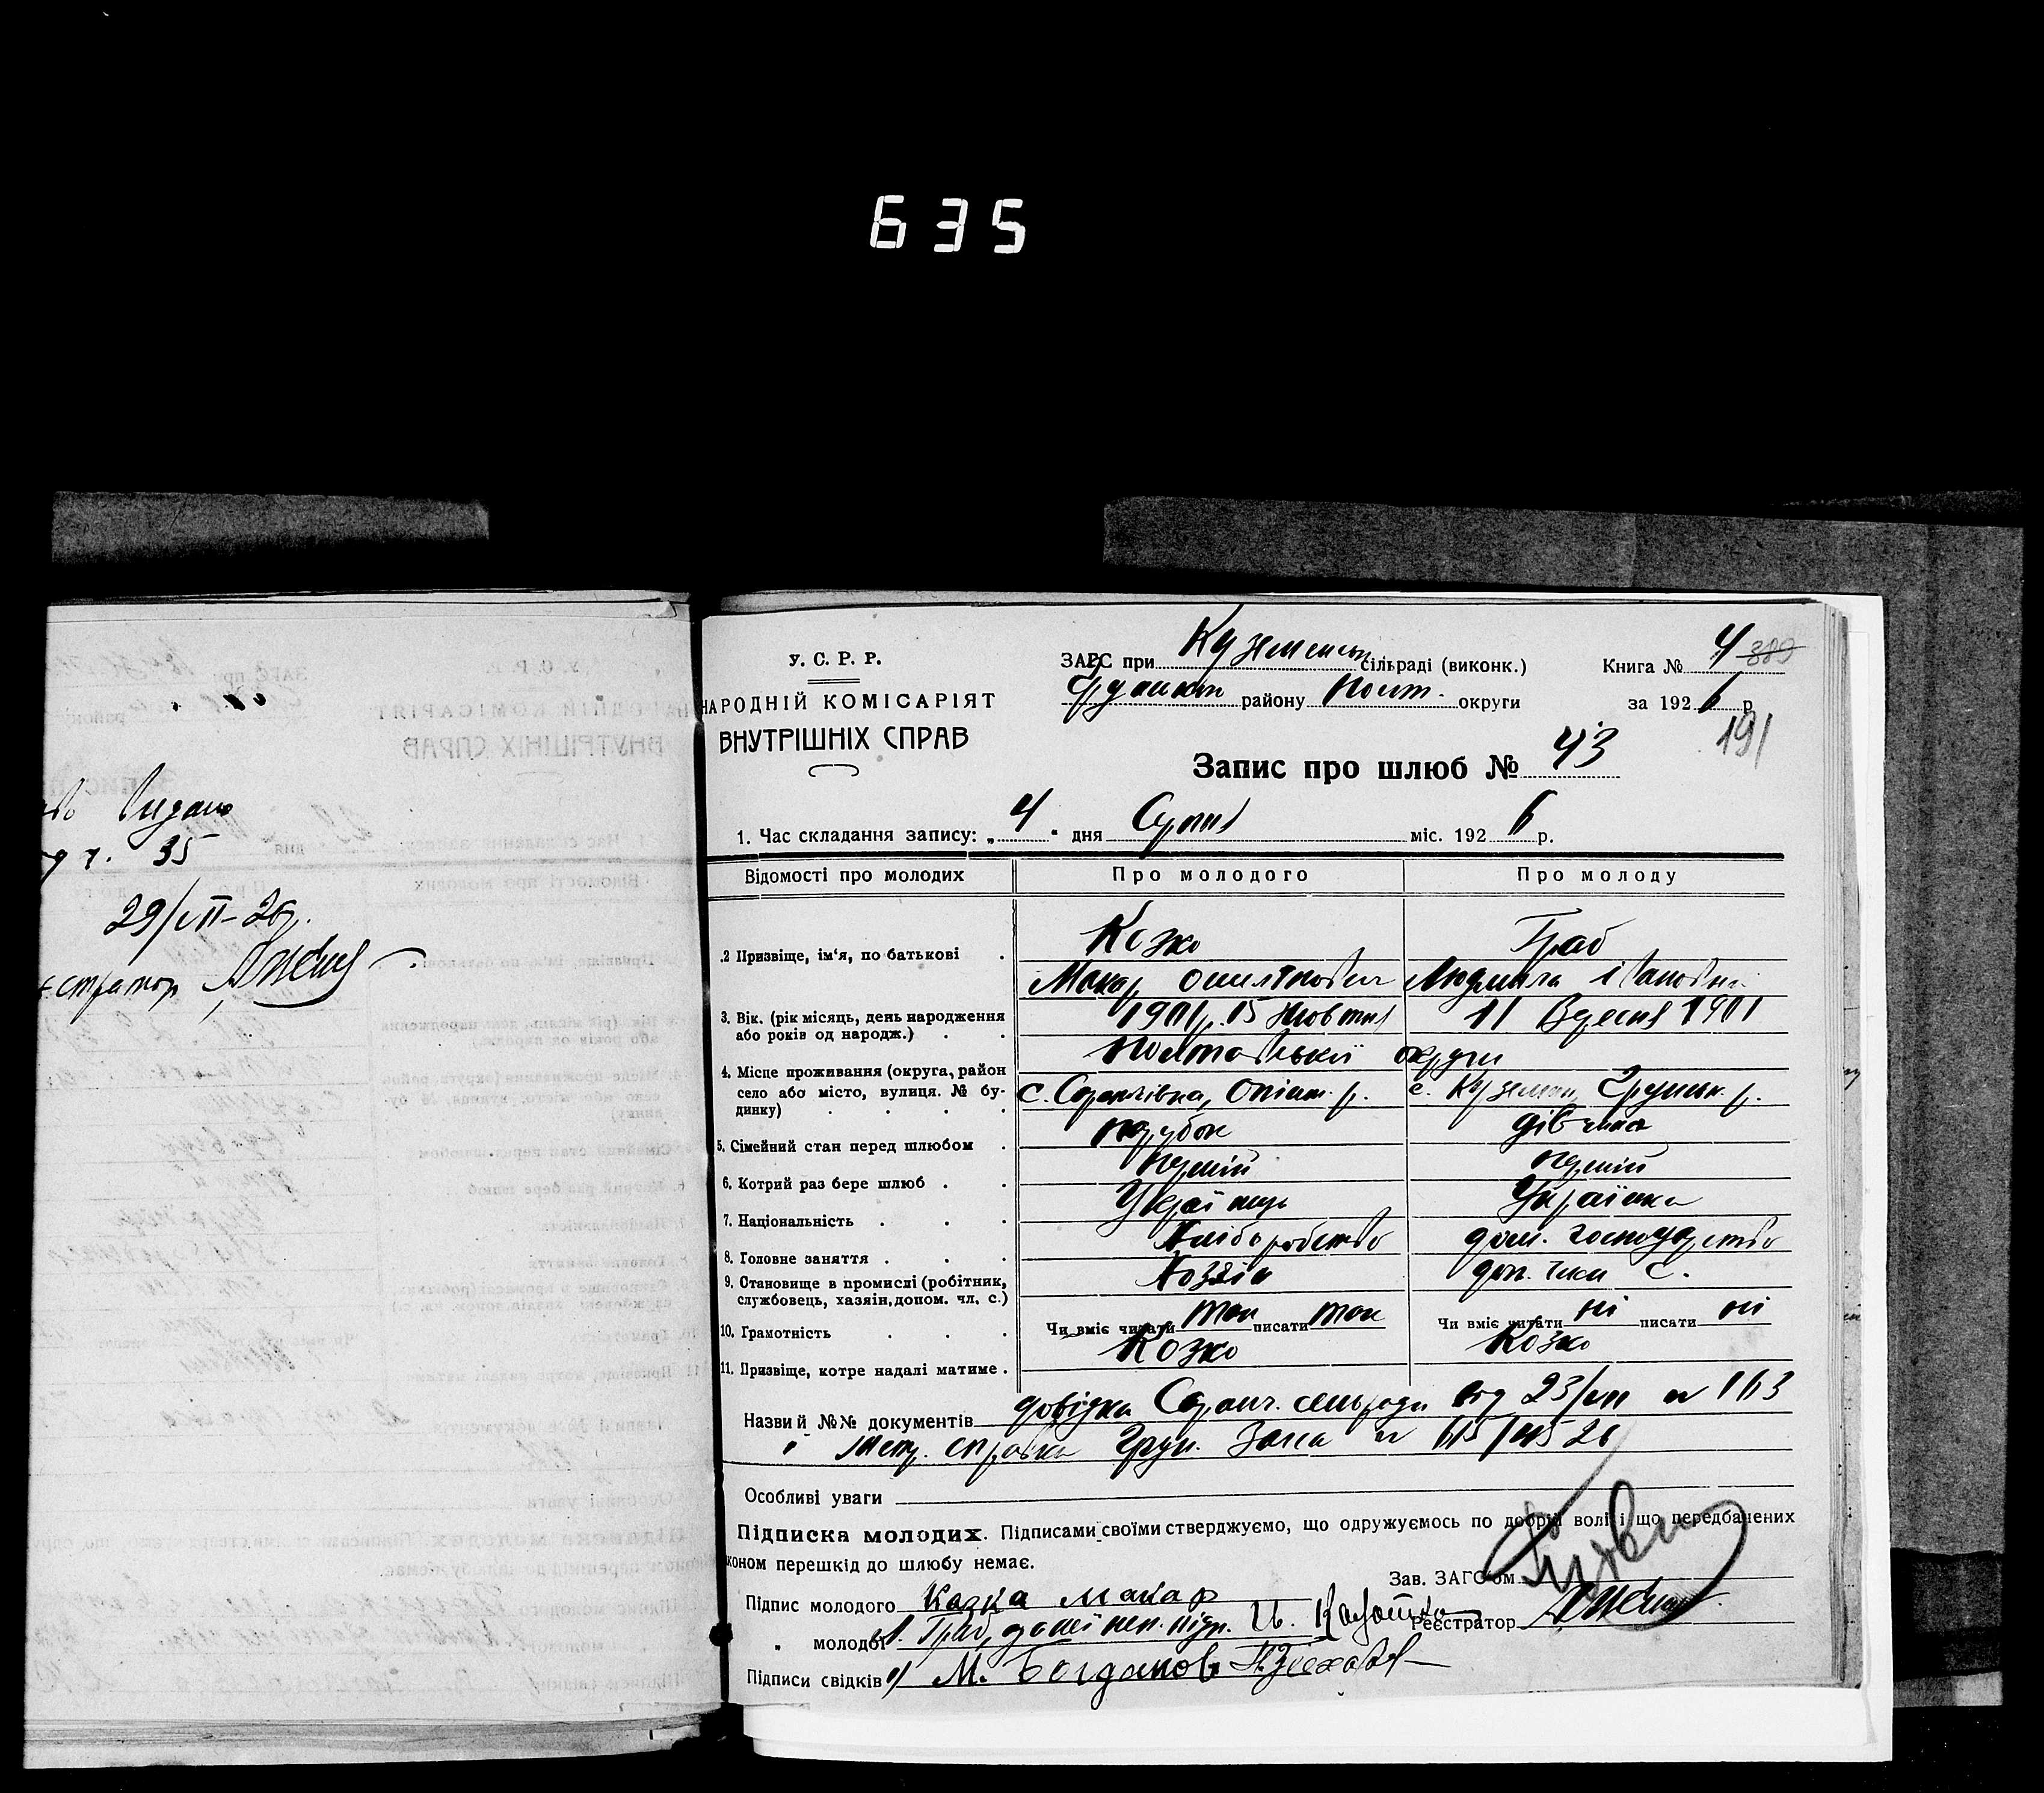 635
видано
35
29/VII-26 р.
У. С. Р. Р.
НАРОДНІЙ КОМІСАРІЯТ
ВНУТРІШНІХ СПРАВ
ЗАГС при Куземенськ сільраді (виконк.)
Книга № 4 389
району Полт. округи
за 1926 р.
191
Запис про шлюб № 43
1. Час складання запису: „4" дня Серпня міс. 1926 р.
Відомості про молодих Про молодого Про молоду
2 Призвіще, ім'я, по батькові . Козко Граб
Макар Людмила Івановна
3. Вік. (рік місяць, день народження 1901 р. 15 Жовтня 11 Вересня 1901
або років од народж.) . .
Полтавської округи
4. Місце проживання (округа, район
село або місто, вулиця. № бу- с. Опішн. р. с. Куземин, Грунськ. р.
динку) . . . .
5. Сімейний стан перед шлюбом . парубок дівчина
6. Котрий раз бере шлюб . . перший перший
7. Національність . . . Українець Українка
8. Головне заняття . . . Хліборобство дом. господарство
9. Становище в промислі (робітник, Хозяін доп. член с.
службовець, хазяїн, допом. чл. с.)
10. Грамотність . . . Чи вміє читати так писати так Чи вміє читати ні писати ні
11. Призвіще, котре надалі матиме . Козко Козко
Назви й №№ документів довідка сільради від 23/VII № 163
" Метр. справка Грун. Загса № 615
Особливі уваги
Підписка молодих. Підписами своїми стверджуємо, що одружуємось по добрій волі і що передбачених
коном перешкід до шлюбу немає.
Зав. ЗАГС'ом
Підпис молодого Казка Макар
" молодої Л. Граб, за неї неп. підп.
Реєстратор
Підписи свідків 1) М. Богданов